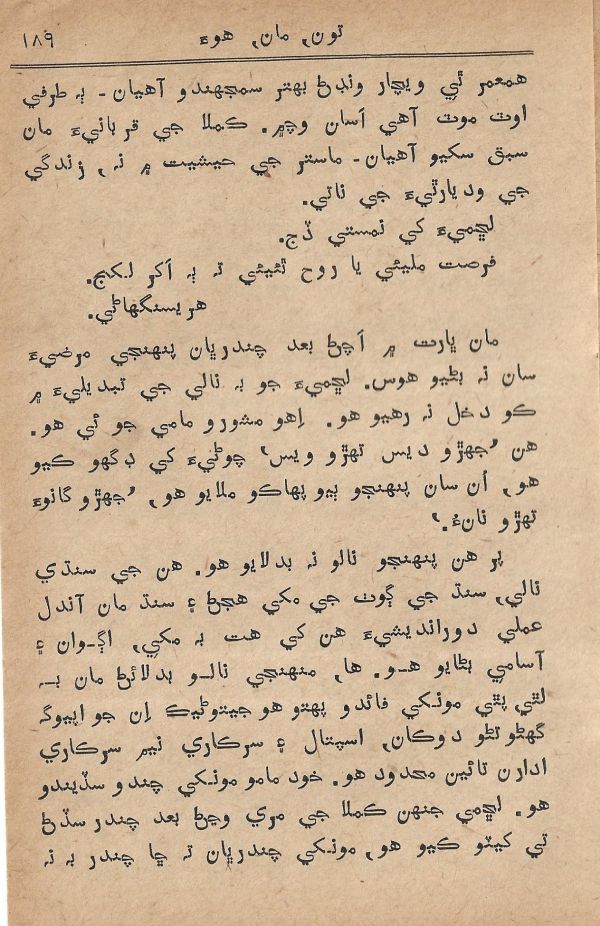 تون، مان، هوءَ ١٨٩
همعمر ئي ويچار ونڊڻ بهتر سمجهندو آهيان - ٻه طرفي
اوٽ موٽ آهي اَسان وچ۾. ڪملا جي قربانيءَ مان
سبق سکيو آهيان - ماستر جي حيثيت ۾ نہ، زندگي
جي وديارٿيءَ جي ناتي.
لڇميءَ کي نمستي ڏج.
فرصت مليئي يا روح ٿيئي تہ ٻہ اَکر لکج.
هريسنگهاڻي.
مان ڀارت ۾ اَچڻ بعد چندرڀان پنهنجي مرضيءَ
سان نہ بڻيو هوس. لڇميءَ جو بہ نالي جي تبديليءَ ۾
ڪو دخل نہ رهيو هو. اِهو مشورو مامي جو ئي هو.
هن ’جهڙو ديس تهڙو ويس‘ چوڻيءَ کي ڊگهو ڪيو
هو، اُن سان پنهنجو ٻيو پهاڪو ملايو هو، ’جهڙو گانوءَ
تهڙو نانءُ.‘
پر هن پنهنجو نالو نہ بدلايو هو. هن جي سنڌي
نالي، سنڌ جي ڳوٺ جي مکي هجڻ ۽ سنڌ مان آندل
عملي دورانديشيءَ هن کي هت بہ مکي، اڳوان ۽
آسامي بڻايو هو. ها، منهنجي نالو بدلائڻ مان بہ
لٿي پٿي مونکي فائدو پهتو هو جيتوڻيڪ اِن جو اُپيوگ
گهڻو تڻو دوڪان، اسپتال ۽ سرڪاري نيم سرڪاري
ادارن تائين محدود هو. خود مامو مونکي چندو سڏيندو
هو. لڇمي جنهن ڪملا جي مري وڃڻ بعد چندر سڏڻ
تي ڪيٽو ڪيو هو، مونکي چندرڀان تہ ڇا چندر بہ نہ